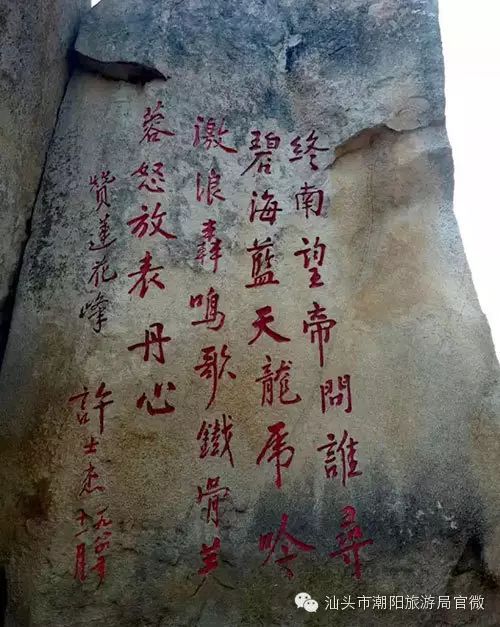 終南望帝問誰尋
碧海藍天龍虎吟
激浪轟鳴歌鐵骨芙
蓉怒放表丹心
贊蓮花峰
許士杰
十一月
汕头市潮阳旅游局官微